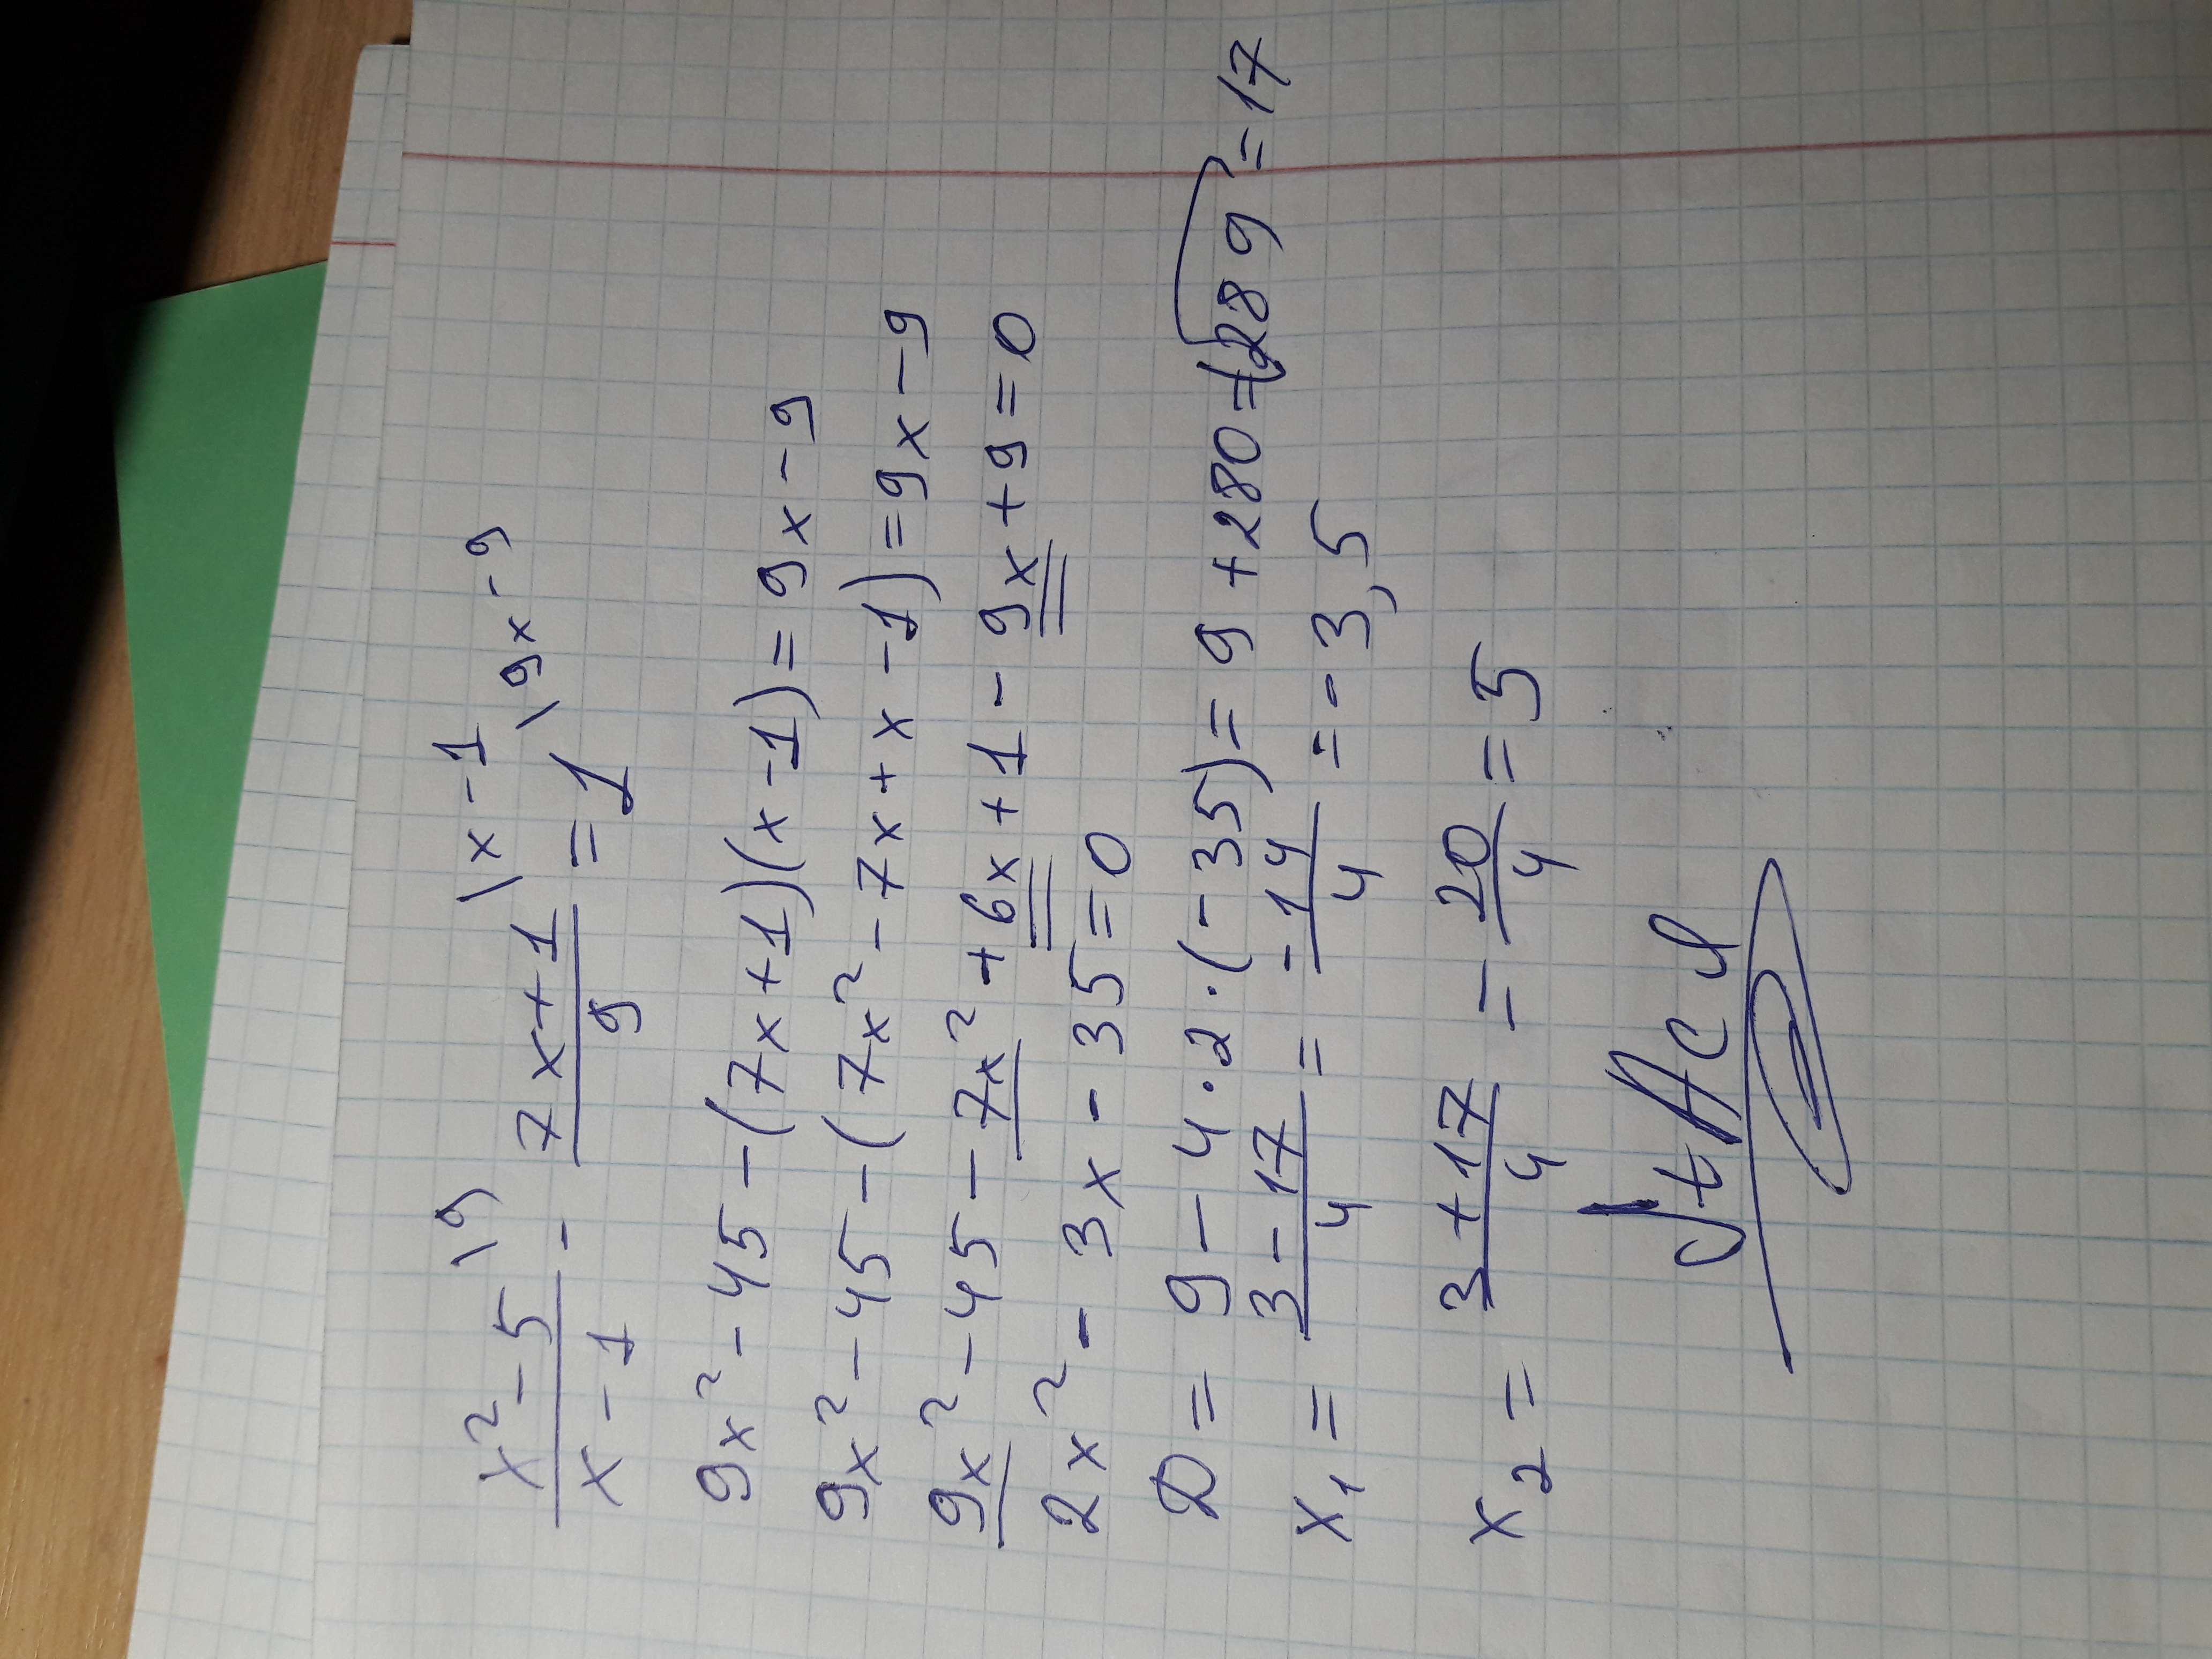 x²-5 \9 / x-1 - 7x+1 \x-1 / 9 = 1 \9x-9
9x² - 45 - (7x+1)(x-1) = 9x-9
9x² - 45 - (7x² - 7x + x - 1) = 9x - 9
9x² - 45 - 7x² + 6x + 1 - 9x + 9 = 0
2x² - 3x - 35 = 0
D = 9 - 4·2·(-35) = 9 + 280 = √289 = 17
x₁ = 3-17/4 = -14/4 = -3,5
x₂ = 3+17/4 = 20/4 = 5